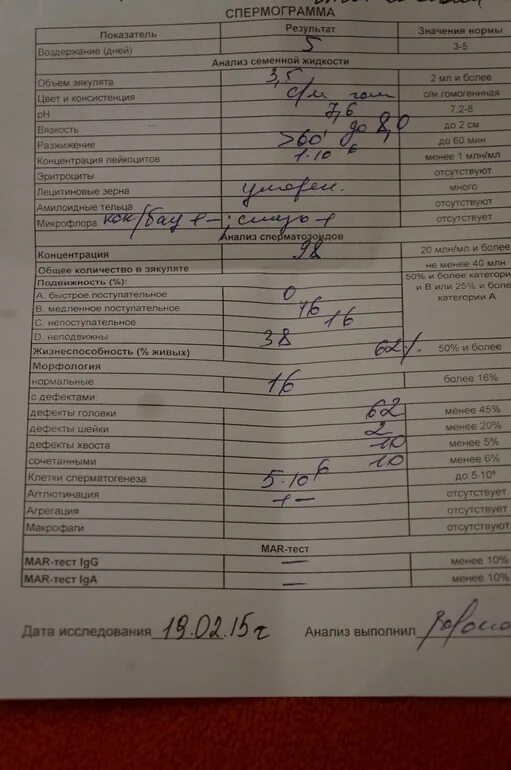 СПЕРМОГРАММА
Показатель Результат Значения нормы
Воздержание (дней) 5 3-5
Анализ семенной жидкости
Объем эякулята 3,5 2 мл и более
Цвет и консистенция с/м гом с/м гомогенная
pH 7,6 7.2-8
Вязкость до 8,0 до 2 см
Разжижение >60' до 60 мин
Концентрация лейкоцитов 1·10⁶ менее 1 млн/мл
Эритроциты отсутствуют
Лецитиновые зерна умерен. много
Амилоидные тельца отсутствуют
Микрофлора кок/бац +-; слизь + отсутствует
Анализ сперматозоидов
Концентрация 98 20 млн/мл и более
Общее количество в эякуляте не менее 40 млн
Подвижность (%): 50% и более категори
А. быстрое поступательное 0 и В или 25% и боле
В. медленное поступательное 46 категории А
С. непоступательное 16
D. неподвижны 38
Жизнеспособность (% живых) 62% 50% и более
Морфология
нормальные 16 более 16%
с дефектами:
дефекты головки 62 менее 45%
дефекты шейки 2 менее 20%
дефекты хвоста 10 менее 5%
сочетанными 10 менее 6%
Клетки сперматогенеза 5·10⁶ до 5·10⁶
Агглютинация +- отсутствует
Агрегация отсутствует
Макрофаги отсутствуют
MAR-тест
MAR-тест IgG — менее 10%
MAR-тест IgA — менее 10%
Дата исследования 19.02.15г Анализ выполнил